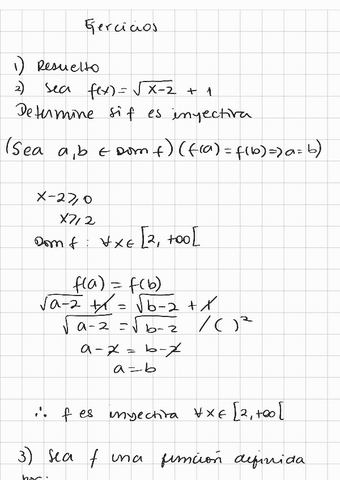 Ejercicios
1) Resuelto
2) Sea f(x) = √x-2 + 1
Determine si f es inyectiva
(Sea a,b ∈ Dom f) (f(a) = f(b) => a = b)
x-2 ≥ 0
x ≥ 2
Dom f : ∀x ∈ [2, +∞[
f(a) = f(b)
√a-2 + 1 = √b-2 + 1
√a-2 = √b-2 / ( )²
a-2 = b-2
a = b
∴ f es inyectiva ∀x ∈ [2, +∞[
3) Sea f una función definida